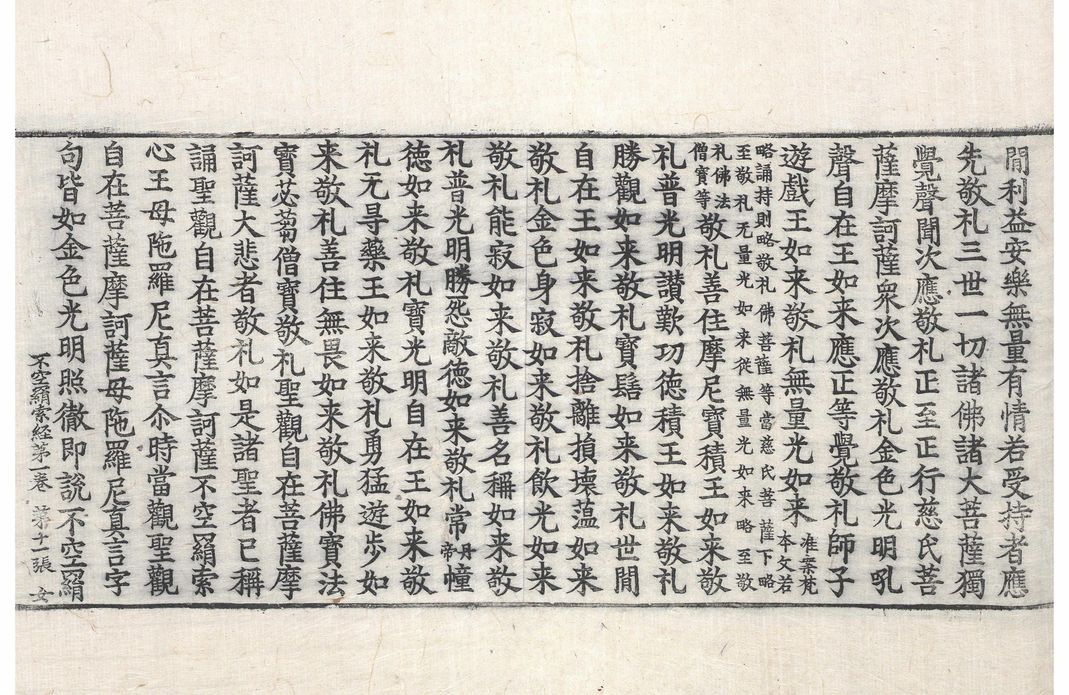 間利益安樂無量有情若受持者應
先敬礼三世一切諸佛諸大菩薩獨
覺聲聞次應敬礼正至正行慈氏菩
薩摩訶薩衆次應敬礼金色光明吼
聲自在王如来應正等覺敬礼師子
遊戲王如来敬礼無量光如来准案梵本文若
略誦持則略敬礼佛菩薩等當慈氏菩薩下略
至敬礼无量光如来從無量光如来略至敬
礼佛法僧寶等敬礼善住摩尼寶積王如来敬
礼普光明讃歎功徳積王如来敬礼
勝觀如来敬礼寶髻如来敬礼世間
自在王如来敬礼捨離損壞蕰如来
敬礼金色身寂如来敬礼飲光如来
敬礼能寂如来敬礼善名稱如来敬
礼普光明勝怨敵徳如来敬礼常丹帝幢
徳如来敬礼寶光明自在王如来敬
礼无㝵藥王如来敬礼勇猛遊步如
来敬礼善住無畏如来敬礼佛寶法
寶苾蒭僧寶敬礼聖觀自在菩薩摩
訶薩大悲者敬礼如是諸聖者已稱
誦聖觀自在菩薩摩訶薩不空羂索
心王母陁羅尼真言尒時當觀聖觀
自在菩薩摩訶薩母陁羅尼真言字
句皆如金色光明照徹即說不空羂
不空羂索経第一卷 第十一張 女